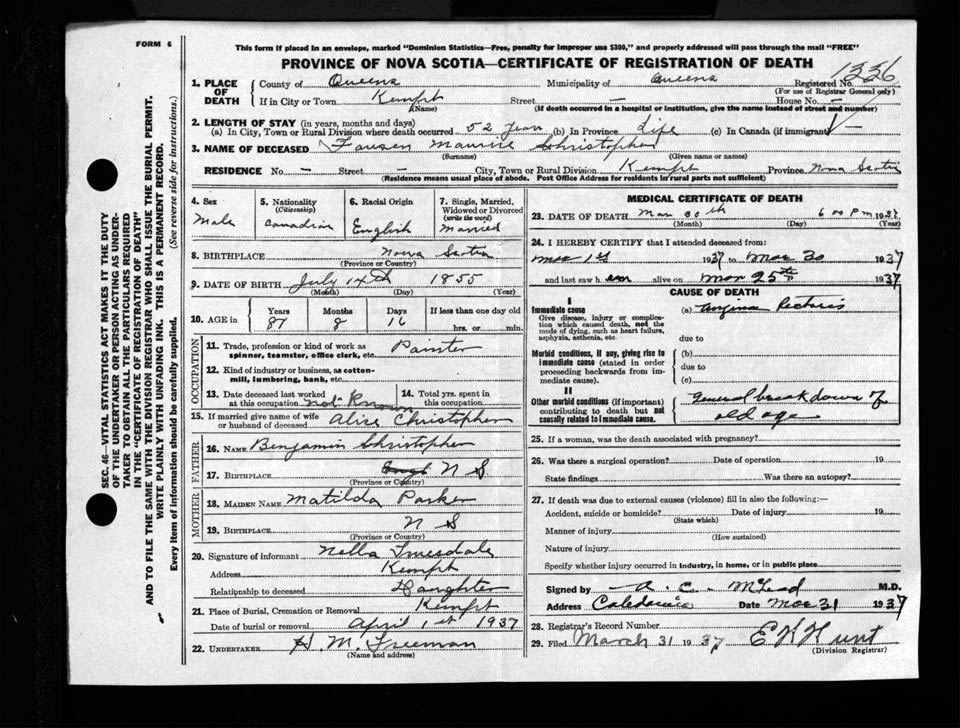 FORM 6
This form if placed in an envelope, marked "Dominion Statistics—Free, penalty for improper use $300," and properly addressed will pass through the mail "FREE"
PROVINCE OF NOVA SCOTIA—CERTIFICATE OF REGISTRATION OF DEATH
1336
1. PLACE OF DEATH
County of Queens Municipality of Queens Registered No.
(For use of Registrar General only)
If in City or Town Kempt Street – House No. –
(Name) (If death occurred in a hospital or institution, give the name instead of street and number)
2. LENGTH OF STAY (in years, months and days)
(a) In City, Town or Rural Division where death occurred 52 years (b) In Province Life (c) In Canada (if immigrant) –
3. NAME OF DECEASED Maurice Christopher
(Surname) (Given name or names)
RESIDENCE No. – Street – City, Town or Rural Division Kempt Province Nova Scotia
(Residence means usual place of abode. Post Office Address for residents in rural parts not sufficient)
4. Sex Male
5. Nationality (Citizenship) Canadian
6. Racial Origin English
7. Single, Married, Widowed or Divorced (write the word) Married
8. BIRTHPLACE Nova Scotia
(Province or Country)
9. DATE OF BIRTH July 14th 1855
(Month) (Day) (Year)
10. AGE in Years Months Days If less than one day old
8 16 hrs. or min.
OCCUPATION
11. Trade, profession or kind of work as spinner, teamster, office clerk, etc. Painter
12. Kind of industry or business, as cotton-mill, lumbering, bank, etc.
13. Date deceased last worked at this occupation not known
14. Total yrs. spent in this occupation
15. If married give name of wife or husband of deceased Alice Christopher
FATHER
16. NAME Benjamin Christopher
17. BIRTHPLACE N S
(Province or Country)
MOTHER
18. MAIDEN NAME Matilda Parker
19. BIRTHPLACE N S
(Province or Country)
20. Signature of informant Nella Truesdale
Address Kempt
Relationship to deceased Daughter
21. Place of Burial, Cremation or Removal Kempt
Date of burial or removal April 1st 1937
22. UNDERTAKER H. M. Freeman
(Name and address)
MEDICAL CERTIFICATE OF DEATH
23. DATE OF DEATH Mar 30th 6 00 P.M. 1937
(Month) (Day) (Year)
24. I HEREBY CERTIFY that I attended deceased from:
Mar 1st 1937 to Mar 30 1937
and last saw h im alive on Mar 25th 1937
CAUSE OF DEATH
I
Immediate cause
Give disease, injury or complication which caused death, not the mode of dying, such as heart failure, asphyxia, asthenia, etc.
(a) Angina Pectoris
due to
Morbid conditions, if any, giving rise to immediate cause (stated in order proceeding backwards from immediate cause).
(b)
due to
(c)
II
Other morbid conditions (if important) contributing to death but not causally related to immediate cause.
General breakdown of
old age
25. If a woman, was the death associated with pregnancy?
26. Was there a surgical operation? Date of operation 19
State findings Was there an autopsy?
27. If death was due to external causes (violence) fill in also the following:—
Accident, suicide or homicide? Date of injury 19
(State which)
Manner of injury
(How sustained)
Nature of injury
Specify whether injury occurred in industry, in home, or in public place
Signed by A. C. McLeod M.D.
Address Caledonia Date Mar 31 1937
28. Registrar's Record Number
29. Filed March 31 1937 E K Hunt
(Division Registrar)
SEC. 46—VITAL STATISTICS ACT MAKES IT THE DUTY
OF THE UNDERTAKER OR PERSON ACTING AS UNDER-
TAKER TO OBTAIN ALL THE PARTICULARS REQUIRED
IN THE "CERTIFICATE OF REGISTRATION OF DEATH"
AND TO FILE THE SAME WITH THE DIVISION REGISTRAR WHO SHALL ISSUE THE BURIAL PERMIT.
WRITE PLAINLY WITH UNFADING INK. THIS IS A PERMANENT RECORD.
Every item of information should be carefully supplied. (See reverse side for instructions.)